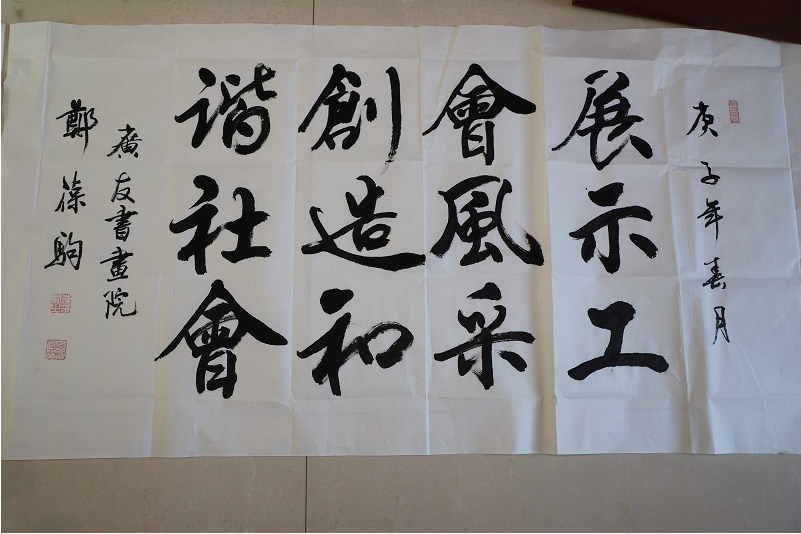 庚子年春月
展示工
會風采
創造和
谐社會
廣友書畫院
鄭葆驹